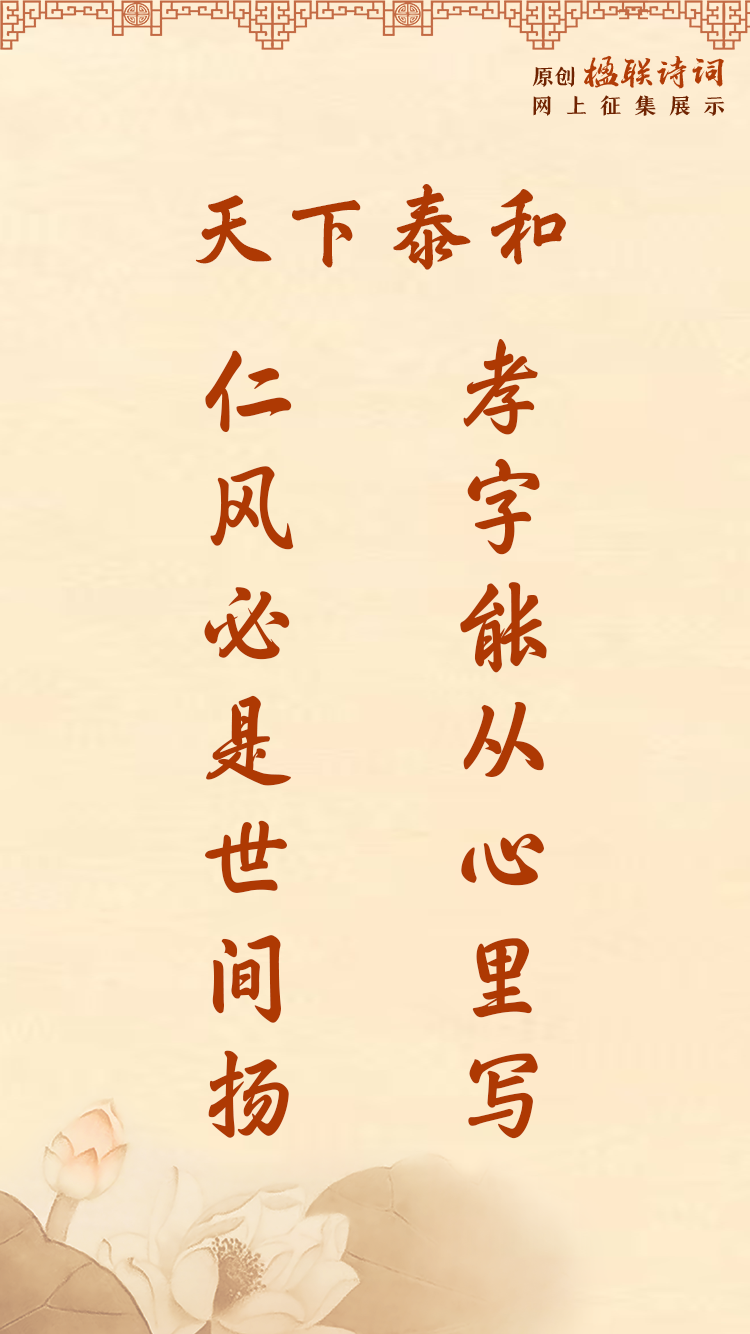 原创 楹联诗词
网上征集展示
天下泰和
孝字能从心里写
仁风必是世间扬